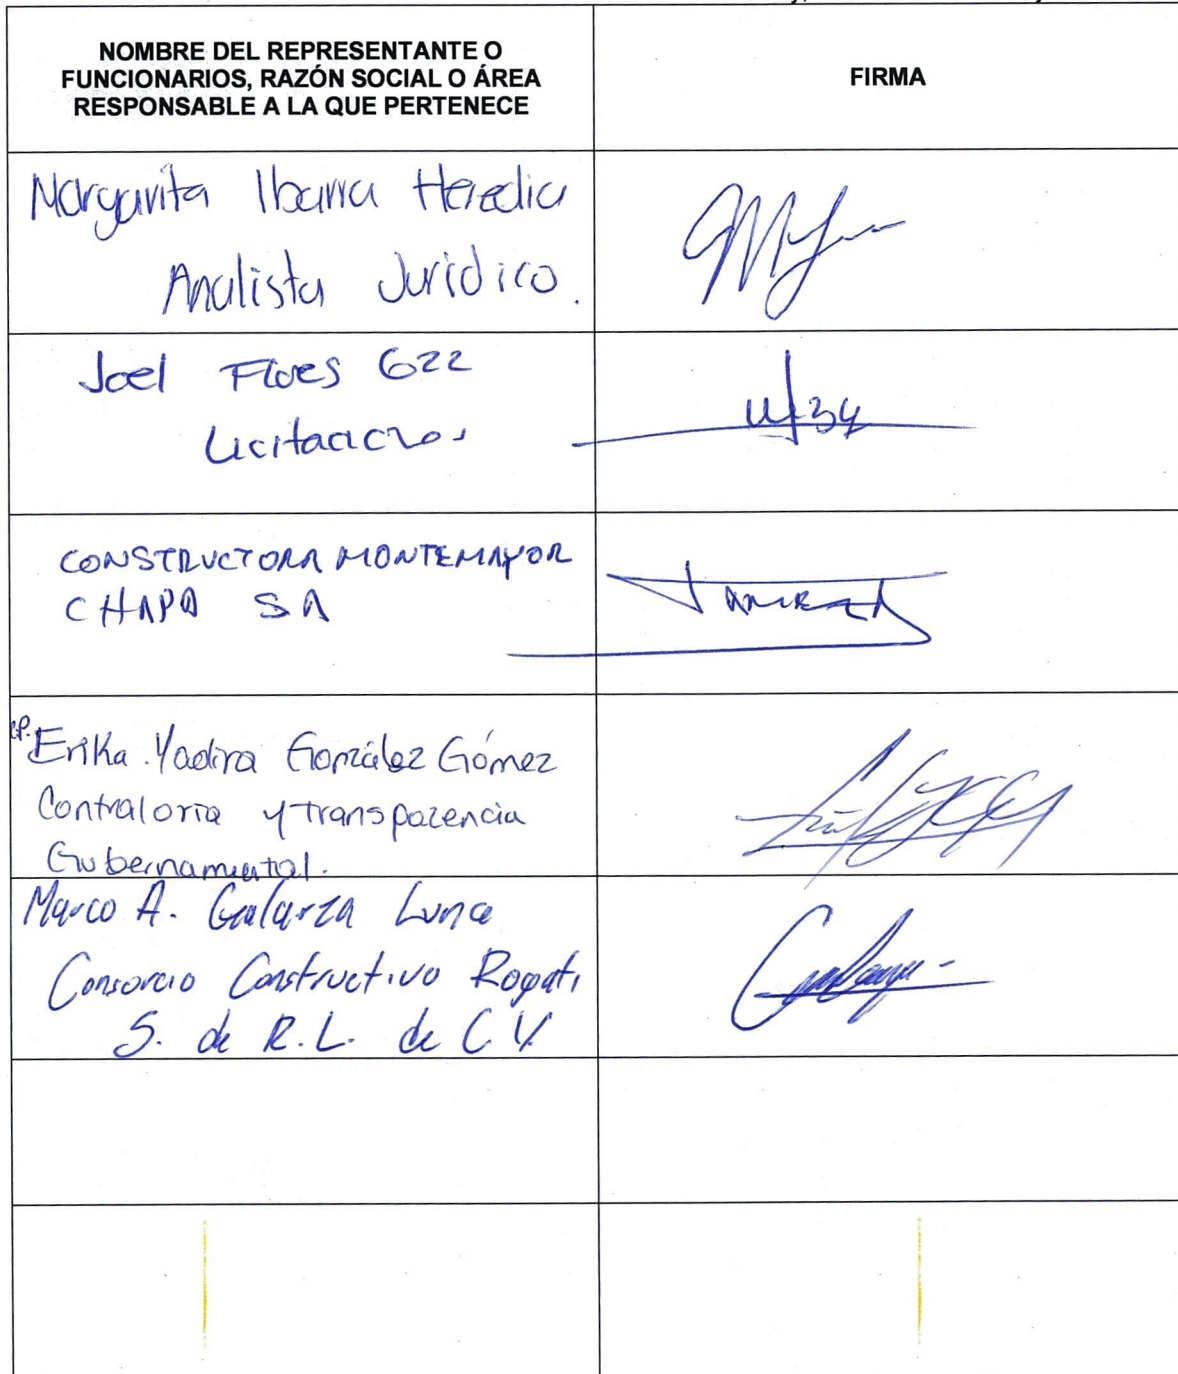 NOMBRE DEL REPRESENTANTE O
FUNCIONARIOS, RAZÓN SOCIAL O ÁREA
RESPONSABLE A LA QUE PERTENECE
FIRMA
Margarita Ibarra Heredia
Analista Jurídico.
Joel Flores G22
Licitacio
CONSTRUCTORA MONTEMAYOR
CHAPA SA
CP. Erika Yadira González Gómez
Contraloría y Transparencia
Gubernamental.
Marco A. Galarza Luna
Consorcio Constructivo Rogati
S. de R.L. de C.V.